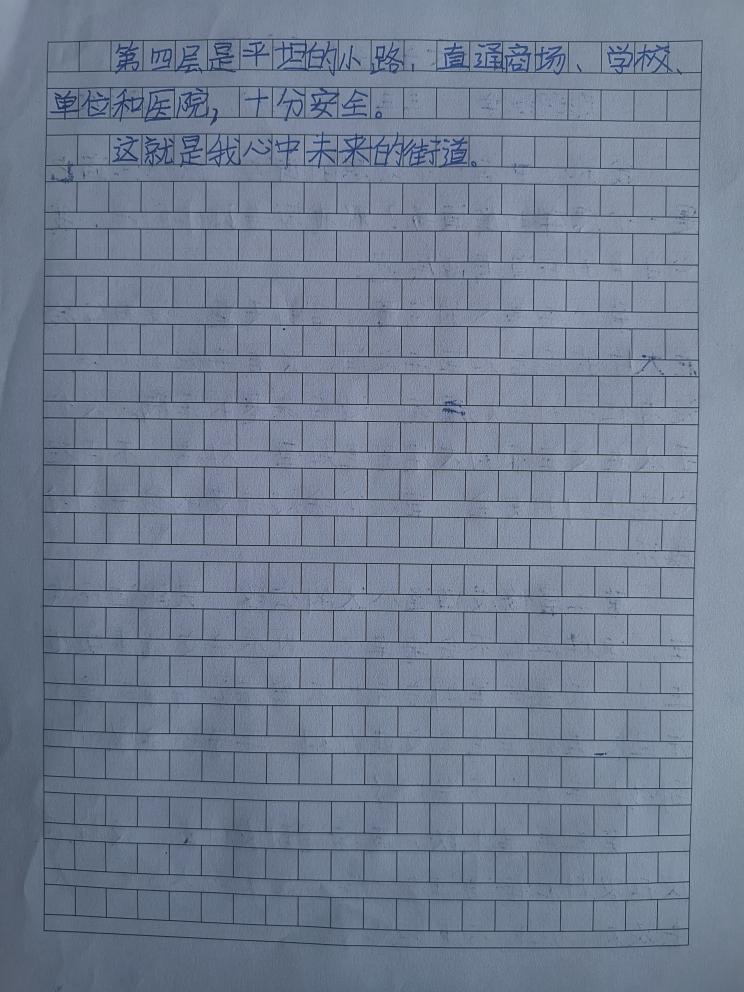 第四层是平坦的小路，直通商场、学校、
单位和医院，十分安全。
这就是我心中未来的街道。